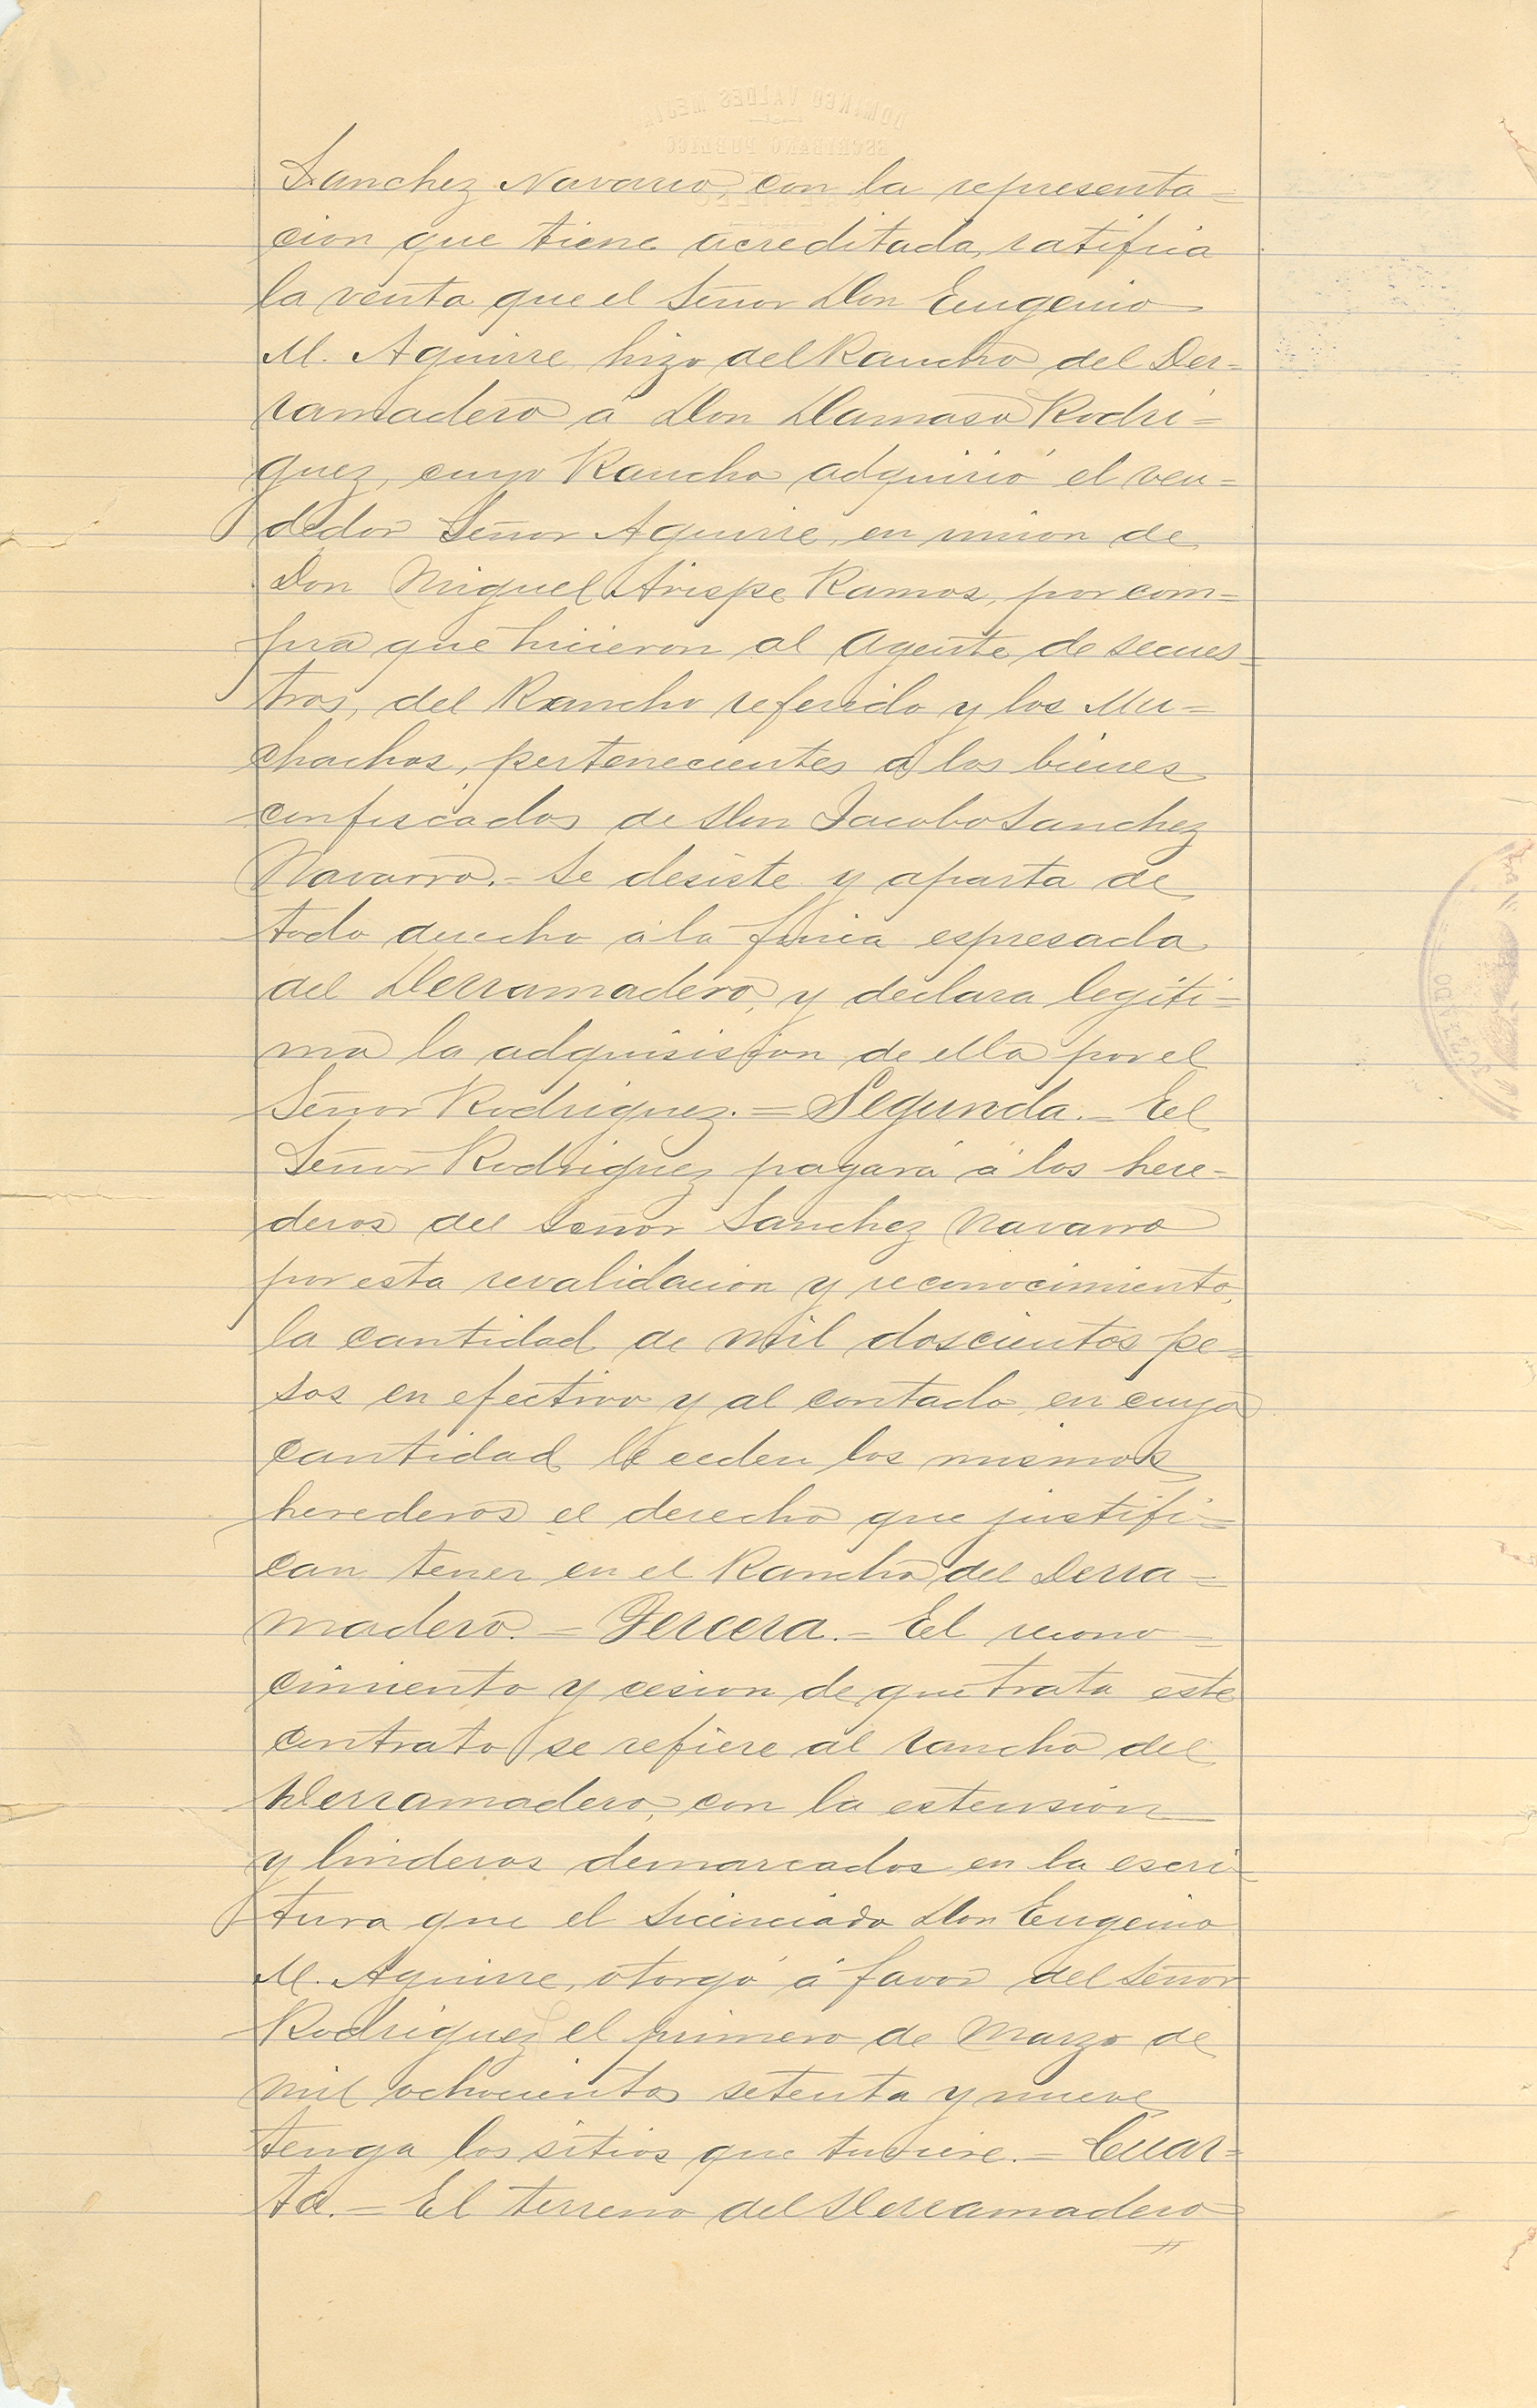 DOMINGO VALDES MEJIA
ESCRIBANO PUBLICO
Sanchez Navarro, con la representa-
cion que tiene acreditada, ratifica
la venta que el Señor Don Eugenio
M. Aguirre hizo del Rancho del Der-
ramadero á Don Damaso Rodri-
guez, cuyo Rancho adquirió el ven-
dedor Señor Aguirre, en union de
Don Miguel Arispe Ramos, por com-
pra que hicieron al Agente de secues-
tros, del Rancho referido y los Mu-
chachos, pertenecientes á los bienes
confiscados de Don Jacobo Sanchez
Navarro.- Se desiste y aparta de
todo derecho á la finca espresada
del Derramadero, y declara legiti-
ma la adquisision de ella por el
Señor Rodriguez.= Segunda.- El
Señor Rodriguez pagará á los here-
deros del Señor Sanchez Navarro
por esta revalidacion y reconocimiento,
la cantidad de mil doscientos pe-
sos en efectivo y al contado, en cuya
cantidad le ceden los mismos
herederos el derecho que justifi-
can tener en el Rancho del Derra-
madero.= Tercera.- El recono-
cimiento y cesion de que trata este
contrato se refiere al rancho del
Derramadero, con la estension
y linderos demarcados en la escri-
tura que el Licenciado Don Eugenio
M. Aguirre, otorgó á favor del Señor
Rodriguez el primero de Marzo de
mil ochocientos setenta y nueve
tenga los sitios que tuviere.= Cuar-
ta.= El terreno del Derramadero